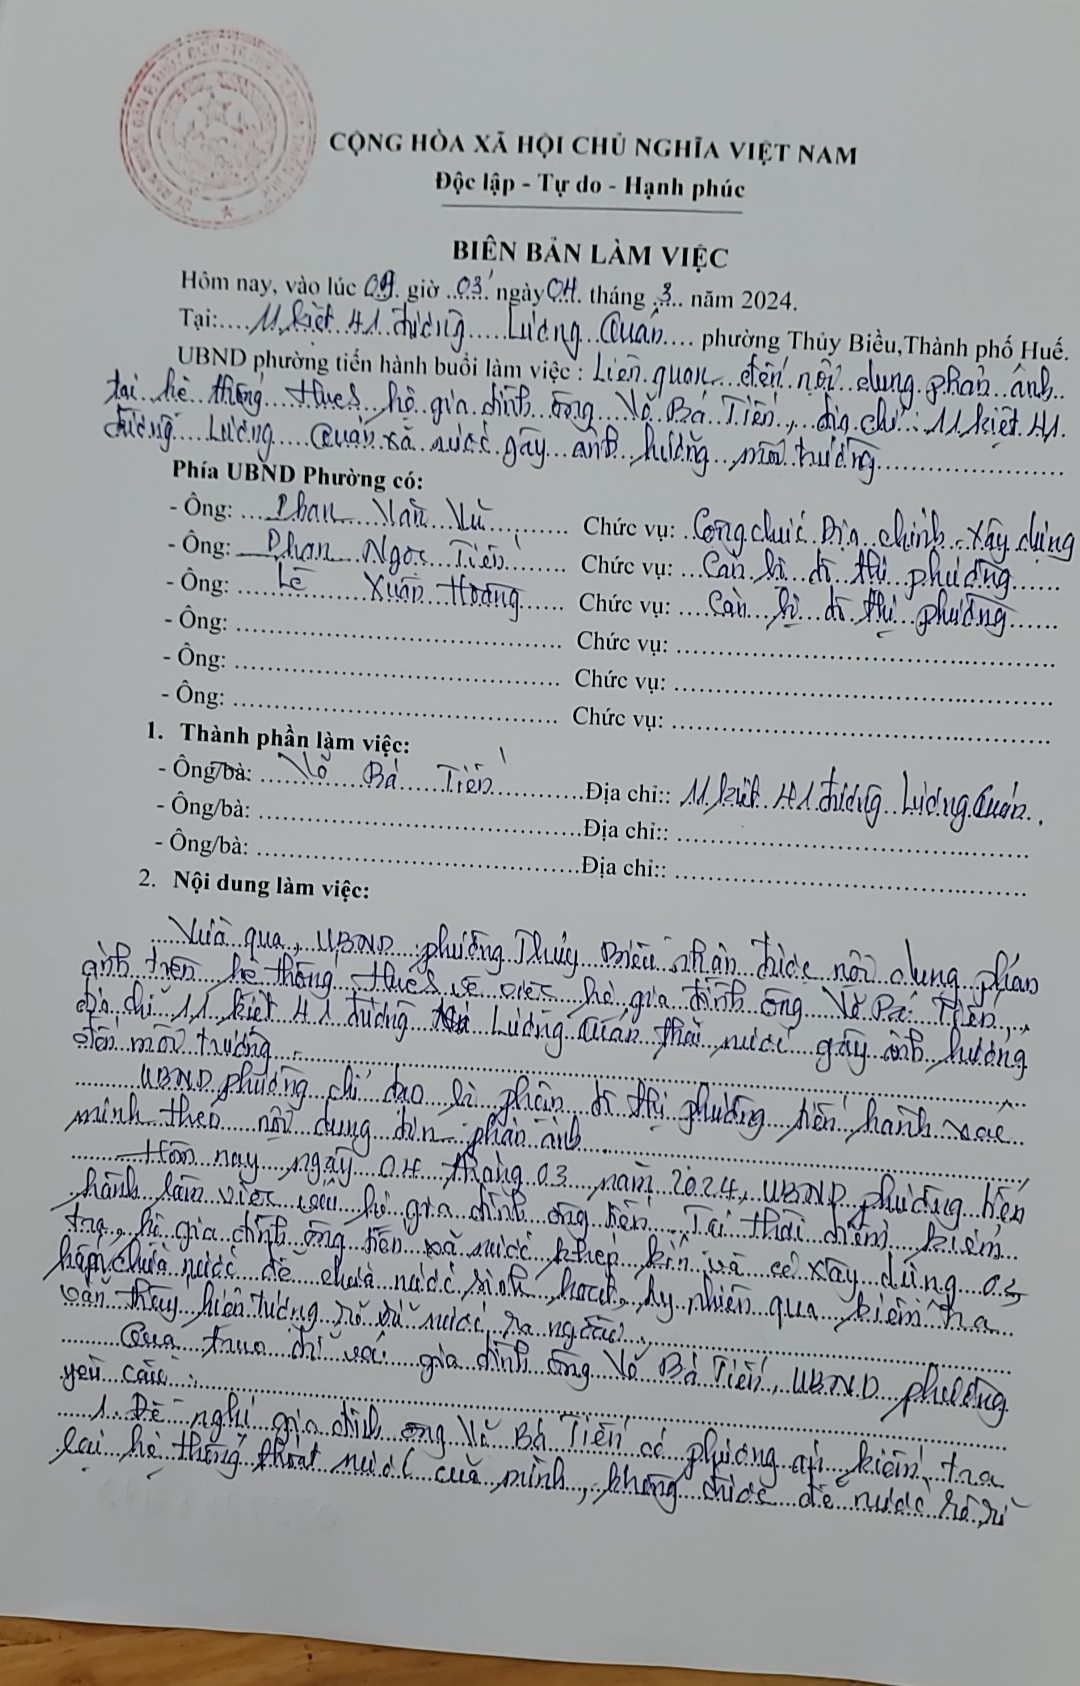 CỘNG HÒA XÃ HỘI CHỦ NGHĨA VIỆT NAM
Độc lập - Tự do - Hạnh phúc
BIÊN BẢN LÀM VIỆC
Hôm nay, vào lúc 09 giờ 03 ngày 04 tháng 3 năm 2024.
Tại: 11 kiệt 41 đường Lương Quán phường Thủy Biều,Thành phố Huế.
UBND phường tiến hành buổi làm việc : Liên quan đến nội dung phản ánh
tại hệ thống HueS hộ gia đình ông Võ Bá Tiến, địa chỉ: 11 kiệt 41
đường Lương Quán xả nước gây ảnh hưởng môi trường
Phía UBND Phường có:
- Ông: Phan Văn Vũ Chức vụ: Công chức Địa chính - Xây dựng
- Ông: Phan Ngọc Tiến Chức vụ: Cán bộ đô thị phường
- Ông: Lê Xuân Hoàng Chức vụ: Cán bộ đô thị phường
- Ông: Chức vụ:
- Ông: Chức vụ:
- Ông: Chức vụ:
1. Thành phần làm việc:
- Ông/bà: Võ Bá Tiến Địa chỉ:: 11 kiệt 41 đường Lương Quán.
- Ông/bà: Địa chỉ::
- Ông/bà: Địa chỉ::
2. Nội dung làm việc:
Vừa qua, UBND phường Thủy Biều nhận được nội dung phản
ánh trên hệ thống HueS về việc hộ gia đình ông Võ Bá Tiến,
địa chỉ 11 kiệt 41 đường Lương Quán thải nước gây ảnh hưởng
đến môi trường.
UBND phường chỉ đạo bộ phận đô thị phường tiến hành xác
minh theo nội dung đơn phản ánh.
Hôm nay ngày 04 tháng 03 năm 2024, UBND phường tiến
hành làm việc với hộ gia đình ông Tiến. Tại thời điểm kiểm
tra, hộ gia đình ông Tiến xả nước khép kín và có xây dựng 03
hầm chứa nước để chứa nước sinh hoạt, tuy nhiên qua kiểm tra
vẫn thấy hiện tượng rò rỉ nước ra ngoài.
Qua trao đổi với gia đình ông Võ Bá Tiến, UBND phường
yêu cầu:
1. Đề nghị gia đình ông Võ Bá Tiến có phương án kiểm tra
lại hệ thống thoát nước của mình, không được để nước rò rỉ